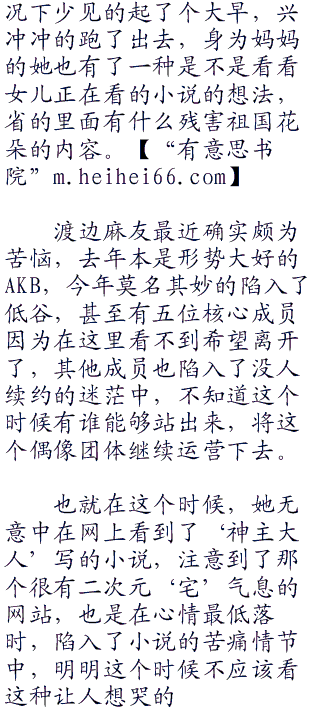 况下少见的起了个大早，兴
冲冲的跑了出去，身为妈妈
的她也有了一种是不是看看
女儿正在看的小说的想法，
省的里面有什么残害祖国花
朵的内容。【“有意思书
院”m.heihei66.com】
渡边麻友最近确实颇为
苦恼，去年本是形势大好的
AKB，今年莫名其妙的陷入了
低谷，甚至有五位核心成员
因为在这里看不到希望离开
了，其他成员也陷入了没人
续约的迷茫中，不知道这个
时候有谁能够站出来，将这
个偶像团体继续运营下去。
也就在这个时候，她无
意中在网上看到了‘神主大
人’写的小说，注意到了那
个很有二次元‘宅’气息的
网站，也是在心情最低落
时，陷入了小说的苦痛情节
中，明明这个时候不应该看
这种让人想哭的